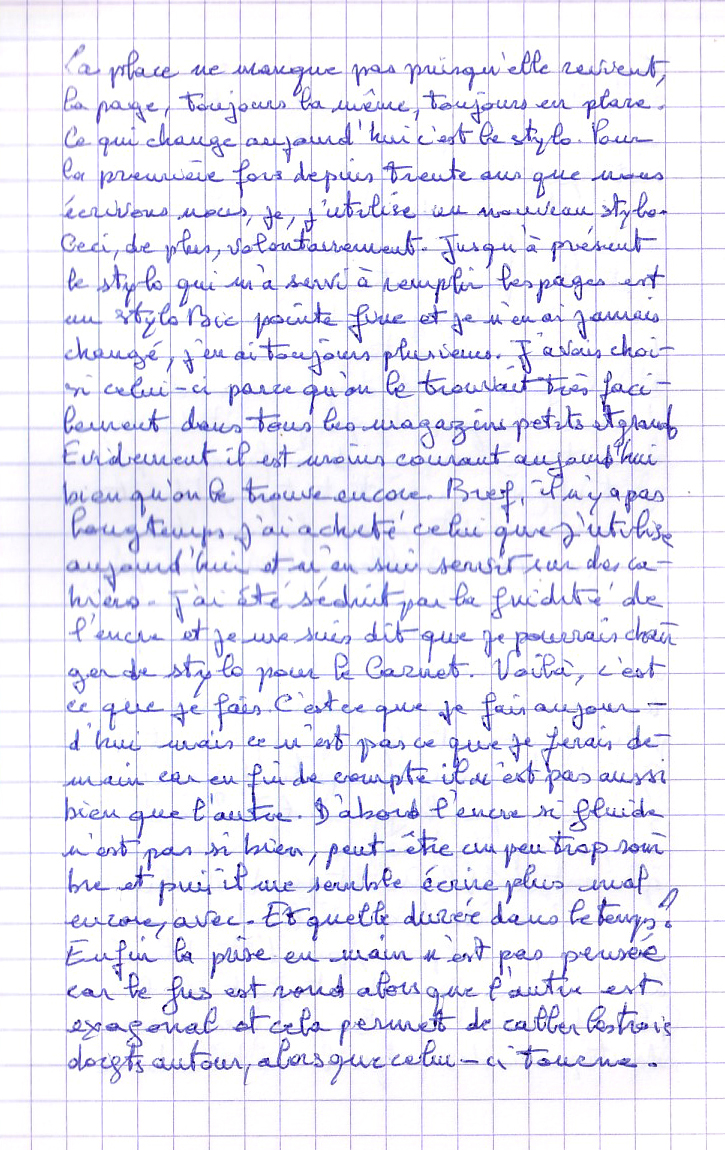 La place ne manque pas puisqu'elle revient,
la page, toujours la même, toujours en place.
Ce qui change aujourd'hui c'est le stylo. Pour
la première fois depuis trente ans que nous
écrivons nous, je, j'utilise un nouveau stylo.
Ceci, de plus, volontairement. Jusqu'à présent
le stylo qui m'a servi à remplir les pages est
un stylo Bic pointe fine et je n'en ai jamais
changé, j'en ai toujours plusieurs. J'avais choi-
si celui-ci parce qu'on le trouvait très faci-
lement dans tous les magazins petits et grands
Evidement il est moins courant aujourd'hui
bien qu'on le trouve encore. Bref, il n'y a pas
longtemps j'ai acheté celui que j'utilise
aujourd'hui et m'en suis servit sur des ca-
hiers. J'ai été séduit par la fluidité de
l'encre et je me suis dit que je pourrais chan
ger de stylo pour le Carnet. Voilà, c'est
ce que je fais. C'est ce que je fais aujour-
d'hui mais ce n'est pas ce que je ferais de-
main car en fin de compte il n'est pas aussi
bien que l'autre. D'abord l'encre si fluide
n'est pas si bien, peut-être un peu trop som
bre et puis il me semble écrire plus mal
encore, avec. Et quelle durée dans le temps ?
Enfin la prise en main n'est pas pensée
car le fus est rond alors que l'autre est
exagonal et cela permet de caller les trois
doigts autour, alors que celui-ci tourne.